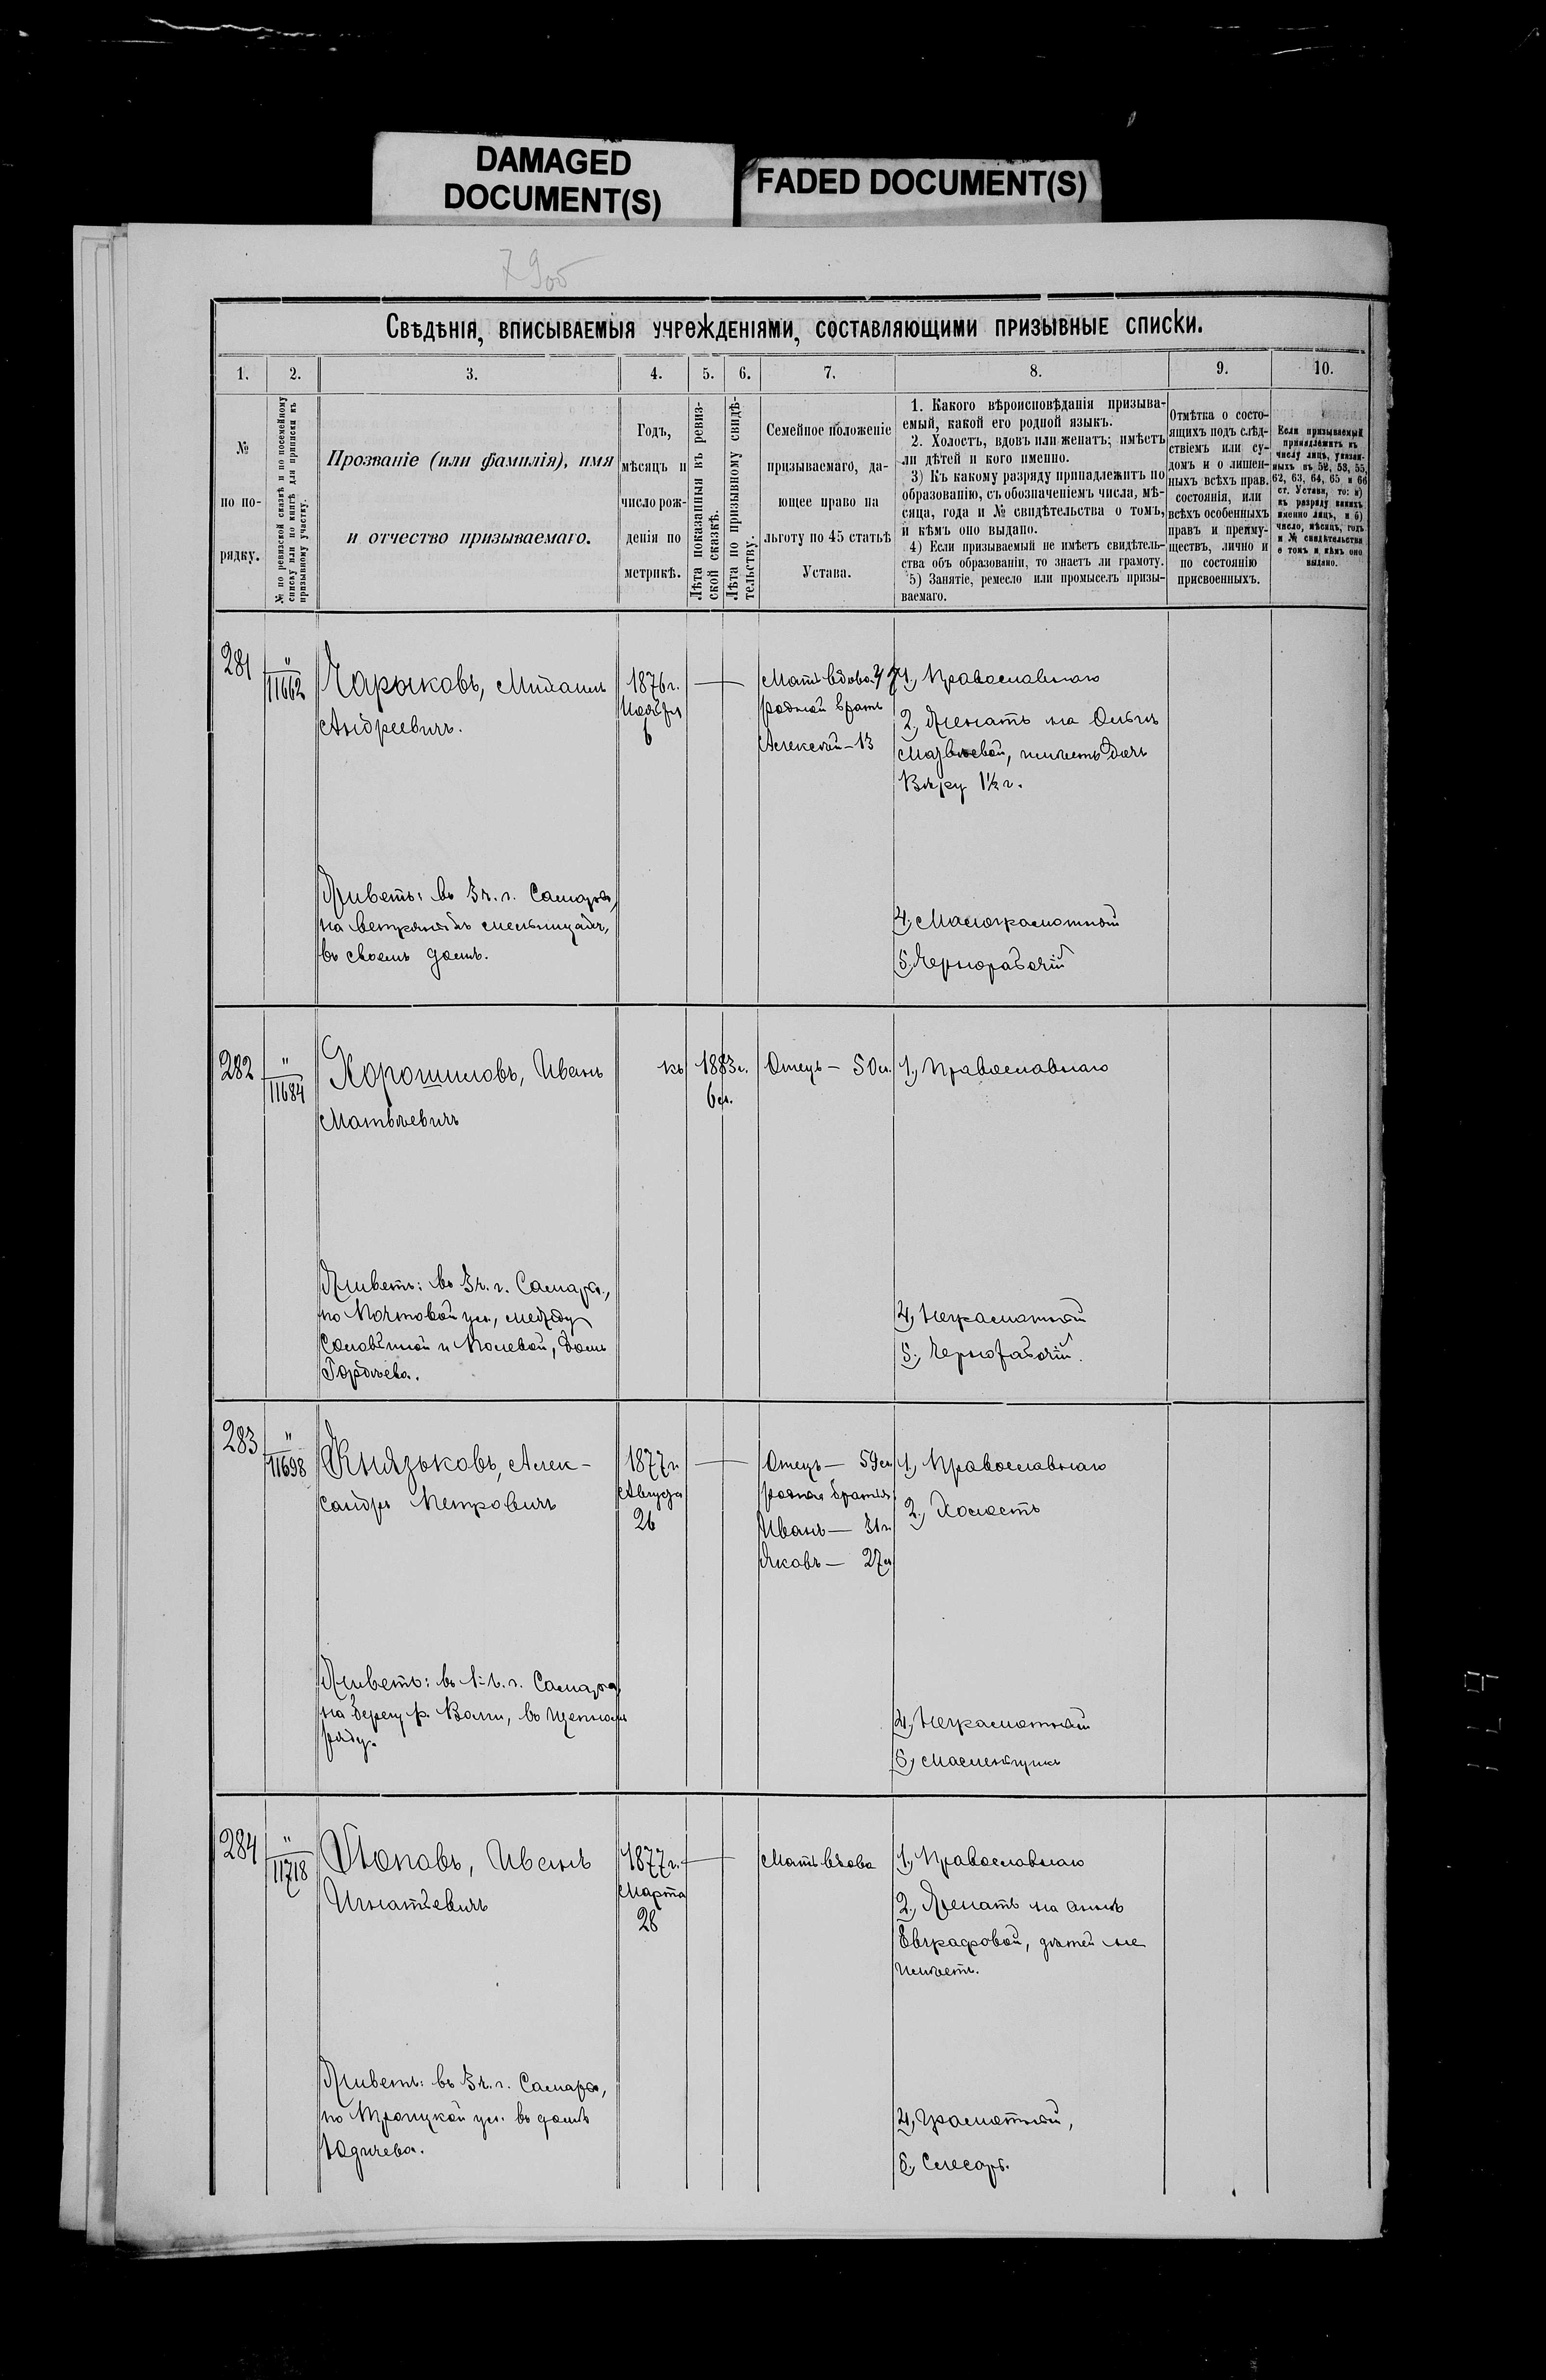 DAMAGED
DOCUMENT(S)
FADED DOCUMENT(S)
Свѣдѣнія, вписываемыя учрежденіями, составляющими призывные списки.
1. 2. 3. 4. 5. 6. 7. 8. 9. 10.
№
по по-
рядку.
№ по ревизской сказкѣ и по посемейному
списку или по книгѣ для приписки къ
призывному участку.
Прозваніе (или фамилія), имя
и отчество призываемаго.
Годъ,
мѣсяцъ и
число рож-
денія по
метрикѣ.
Лѣта показанныя въ ревиз-
ской сказкѣ.
Лѣта по призывному свидѣ-
тельству.
Семейное положеніе
призываемаго, да-
ющее право на
льготу по 45 статьѣ
Устава.
1. Какого вѣроисповѣданія призыва-
емый, какой его родной языкъ.
2. Холостъ, вдовъ или женатъ; имѣетъ
ли дѣтей и кого именно.
3) Къ какому разряду принадлежитъ по
образованію, съ обозначеніемъ числа, мѣ-
сяца, года и № свидѣтельства о томъ,
и кѣмъ оно выдано.
4) Если призываемый не имѣетъ свидѣтель-
ства объ образованіи, то знаетъ ли грамоту.
5) Занятіе, ремесло или промыселъ призы-
ваемаго.
Отмѣтка о состо-
ящихъ подъ слѣд-
ствіемъ или су-
домъ и о лишен-
ныхъ всѣхъ правъ
состоянія, или
всѣхъ особенныхъ
правъ и преиму-
ществъ, лично и
по состоянію
присвоенныхъ.
Если призываемый
принадлежитъ къ
числу лицъ, указан-
ныхъ въ 52, 53, 55,
62, 63, 64, 65 и 66
ст. Устава, то: а)
къ разряду какихъ
именно лицъ, и б)
число, мѣсяцъ, годъ
и № свидѣтельства
о томъ и кѣмъ оно
выдано.
281
"
11662
Чарыковъ, Михаилъ
Андреевичъ.
1876 г.
Ноября
6
Мать вдова 47
родной братъ
Алексѣй — 13
1., Православнаго
2., Женатъ на Ольгѣ
имѣетъ дочь
Вѣру 1½ г.
Живетъ: въ 3 ч. г. Самары,
на вѣтряныхъ мельницахъ,
въ своемъ домѣ.
4., Малограмотный
5., Чернорабочій
282
"
11684
Хорошиловъ, Иванъ
Матвѣевичъ
къ 1883 г.
6 л.
Отецъ — 50 л.
1., Православнаго
Живетъ: въ 3 ч. г. Самары,
по Почтовой ул., между
Соловьиной и Полевой, домъ
Гордѣева.
4., Неграмотный
5., Чернорабочій.
283
"
11698
Князьковъ, Алек-
сандръ Петровичъ
1877 г.
Августа
26
Отецъ — 59 л.
родные братья
Иванъ — 31 г.
Яковъ — 27 л.
1., Православнаго
2., Холостъ
Живетъ: въ 1-й ч. г. Самары
на берегу р. Волги, въ щепномъ
ряду.
4., Неграмотный
5.,
284
"
11718
Поповъ, Иванъ
Игнатьевичъ
1877 г.
Марта
28
Мать вдова
1., Православнаго
2., Женатъ на Аннѣ
Евграфовой, дѣтей не
имѣетъ.
Живетъ: въ 3 ч. г. Самары,
по Троицкой ул. въ домѣ
Юдичева.
4., Грамотный,
5., Слесарь.